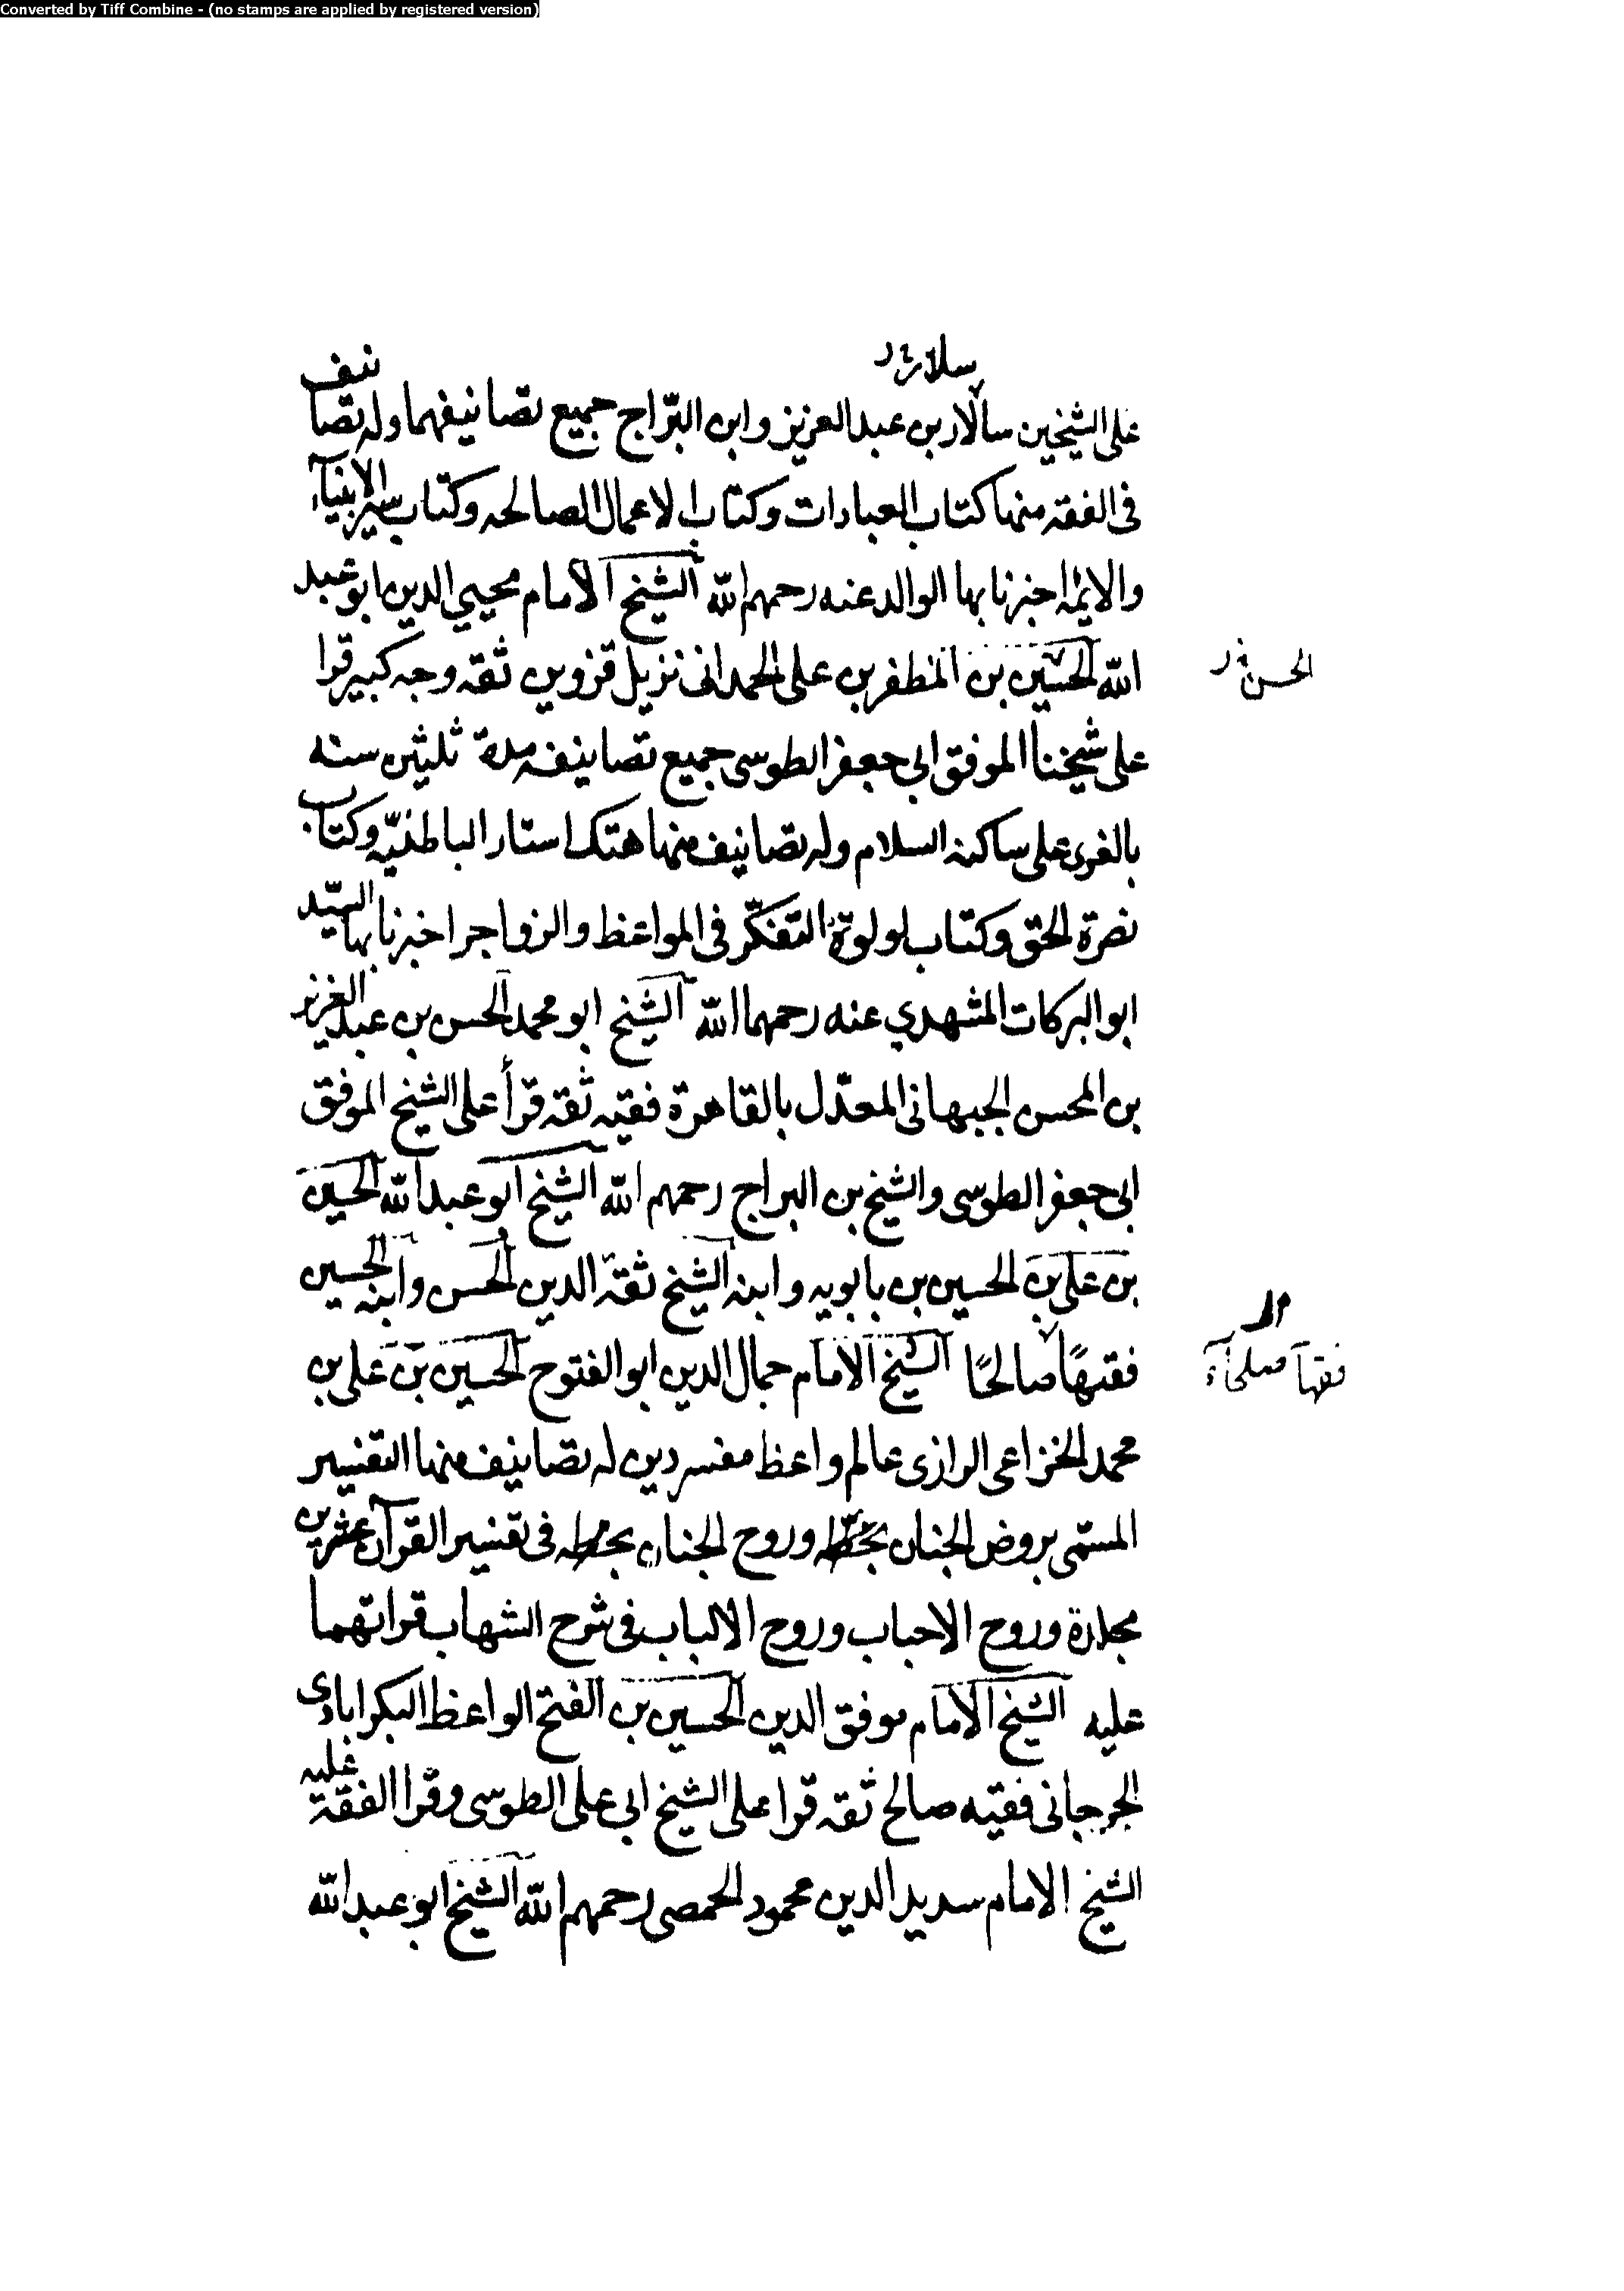 Converted by Tiff Combine - (no stamps are applied by registered version)
سلار
على الشيخين سالار بن عبد العزيز وابن البرّاج جميع تصانيفهما وله تصانيف
فى الفقه منها كتاب العبادات وكتاب الاعمال الصالحه وكتاب سير الانبياء
والائمه اخبرنا بها الوالد عنه رحمهم الله الشيخ الامام محيي الدين ابو عبد
الله الحسين بن المظفر بن على الحمدانى نزيل قزوين ثقه وجه كبير قرا
الحسن
على شيخنا الموفق ابي جعفر الطوسى جميع تصانيفه مدة ثلثين سنه
بالغرى على ساكنه السلام وله تصانيف منها هتك استار الباطنيّه وكتاب
نصرة الحق وكتاب لولوة التفكّر فى المواعظ والزواجر اخبرنا بها السيّد
ابو البركات المشهدي عنه رحمهما الله الشيخ ابو محمد الحسن بن عبد العزيز
بن المحسن الجبهانى المعدّل بالقاهرة فقيه ثقه قرأ على الشيخ الموفق
ابى جعفر الطوسى والشيخ بن البراج رحمهم الله الشيخ ابو عبد الله الحسين
بن على بن الحسين بن بابويه وابنه الشيخ ثقة الدين الحسن وابنه الحسين
فقيهًا صالحًا الشيخ الامام جمال الدين ابو الفتوح الحسين بن على بن
فقهآ صلحآء
محمد الخزاعى الرازى عالم واعظ مفسر دين له تصانيف منها التفسير
المسمّى بروض الجنان بخطّه وروح الجنان بخطه فى تفسير القرآن عشرين
مجلدة وروح الاحباب وروح الالباب فى شرح الشهاب قراتهما
عليه الشيخ الامام موفق الدين الحسين بن الفتح الواعظ البكرابادى
الجرجانى فقيه صالح ثقه قرا على الشيخ ابى على الطوسى وقرا الفقه عليه
الشيخ الامام سديد الدين محمود الحمصى رحمهم الله الشيخ ابو عبد الله